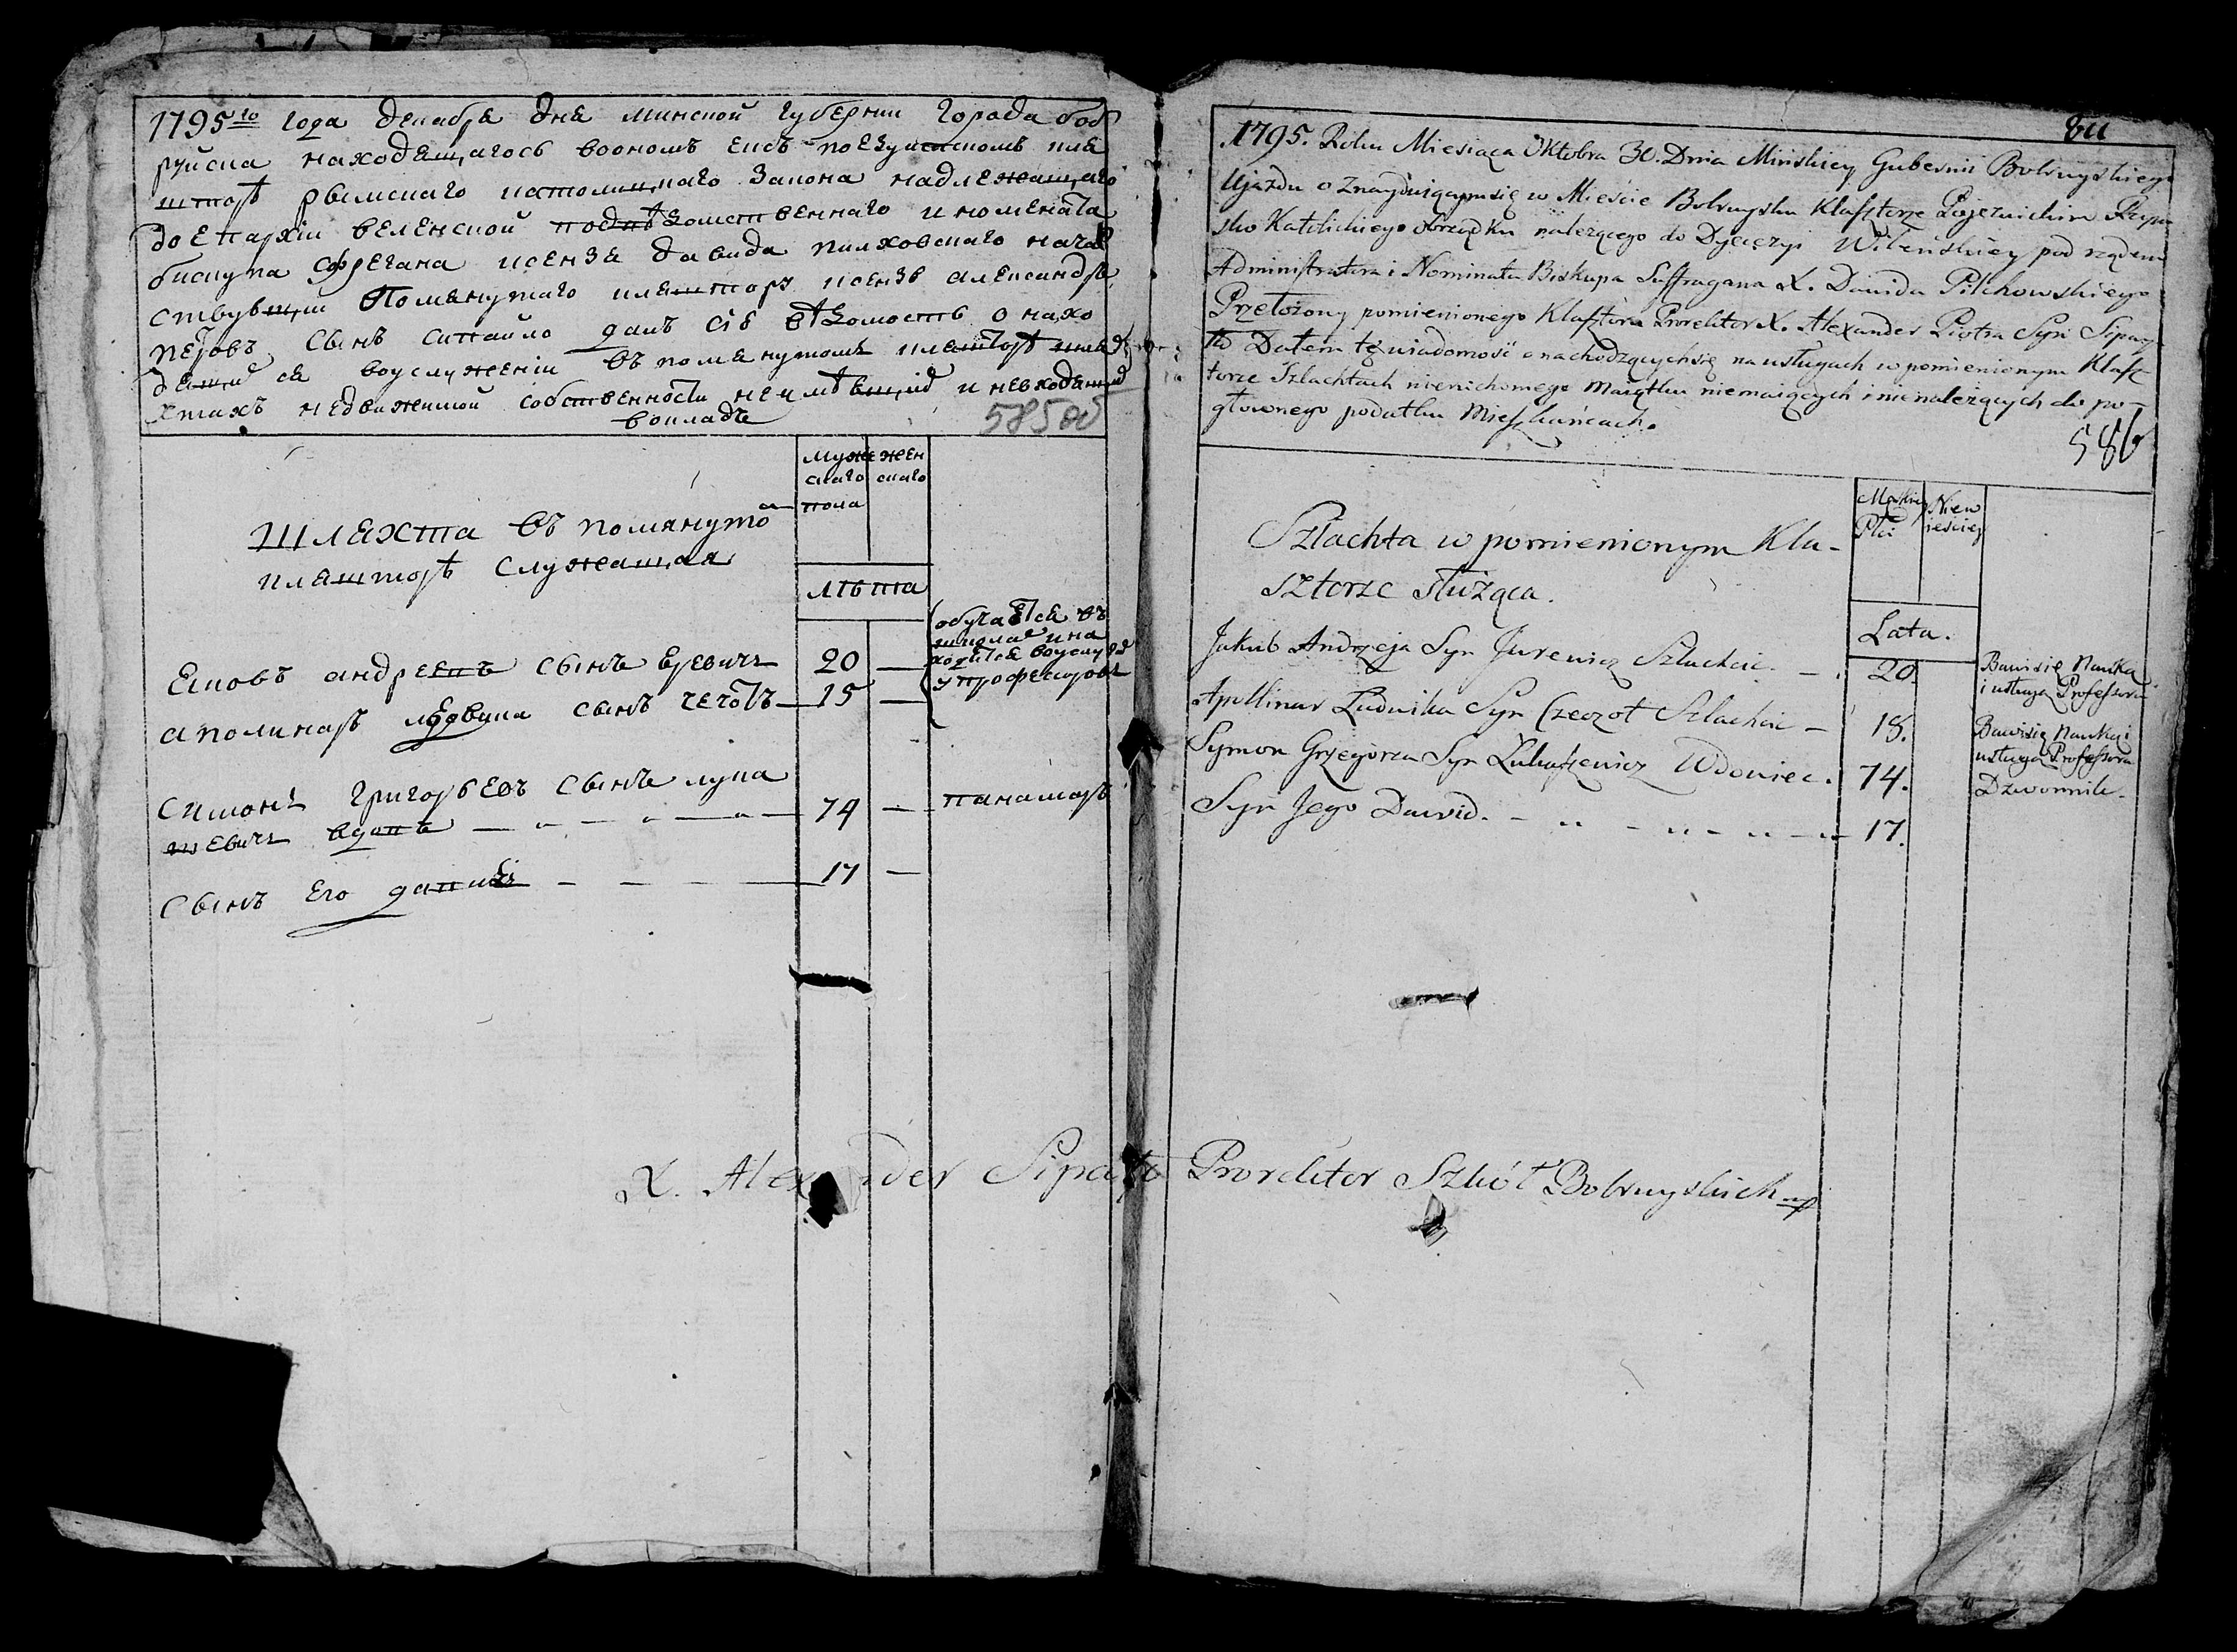 1795го года декабря дня минской губернии города боб
руйска находящагось воономъ ексъ поезуитскомъ кля
шторѣ рымскаго католицкаго закона надлежащаго
до епархіи виленской подвѣдомственнаго и номената
бискупа сфрегана ксенза давида пилховскаго началъ
ствующи помянутаго кляшторъ ксензъ александръ
петровъ сынъ сипайло далъ сію вѣдомость о нахо
дящихся воуслуженіи въ помянутомъ кляшторѣ шля
хтахъ недвижимой собственности неимѣющихъ и невходящихъ
вокладъ
585об
мужескаго пола
женскаго
шляхта въ помянуто
кляшторѣ служащая
лѣта
Яковъ андреевъ сынъ Юревичъ 20 —
аполинаръ людвика сынъ чечотъ — 15 —
обучается въ
школах и на
ходится воуслуж
у професоровъ
симонъ григорьевъ сынъ лука
шевичъ вдовъ — 74 — панамарь
сынъ его давидъ — 17 —
1795. Roku Miesiąca Oktobra 30. Dnia Minskiey Gubernii Bobruyskiego
Ujazdu o Znayduiącymsię w Mieście Bobruysku Klasztorze Pojezuickim Rzym
sko Katolickiego obrządku należącego do Dyecezyi Wileńskiey pod rządem
Administratora i Nominata Biskupa Suffragana X. Dawida Pilchowskiego
Przełożony pomienionego Klasztoru Prorektor X. Alexander Piotra Syn Sipay-
ło Dałem tę wiadomość o nachodzącychsię na usługach w pomienionym Klasz
torze Szlachtach nieruchomego Maiątku niemaiących i nienależących do po-
głownego podatku Mieszkańcach.
586
Męskiey Płci
Niewieściey
Szlachta w pomienionym Kla-
sztorze służąca.
Lata.
Jakub Andrzeja Syn Jurewicz Szlachcic. — 20.
Bawi się Nauką
i usługą Professora
Apollinar Ludwika Syn Czeczot Szlachcic — 18.
Bawi się Nauką i
usługą Professora
Symon Grzegorza Syn Łukaszewicz Wdowiec. 74. Dzwonnik.
Syn Jego Dawid. — 17.
X. Alexander Sipayło Prorektor Szkół Bobruyskich